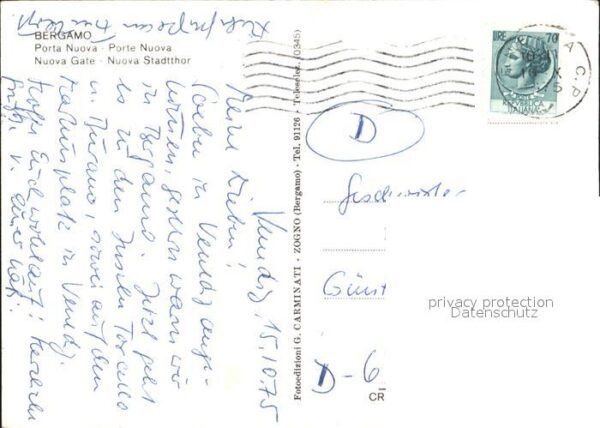 BERGAMO
Porta Nuova - Porte Nuova
Nuova Gate - Nuova Stadtthor
Venedig, 15.10.75
Meine Lieben!
Soeben in Venedig ange-
kommen, gestern waren wir
in Bergamo. Jetzt geht
es zu den Inseln Torcello
u. Burano, sowie auf den
Markusplatz in Venedig.
Hoffe Euch wohlauf! Herzliche
Grüße v. Eurer
Fotoedizioni G. CARMINATI - ZOGNO (Bergamo) - Tel. 91126 - Teleselez. (0345)
LIRE 70
REPUBBLICA
ITALIANA
D
Geschwister
Günt
D-6
CR
privacy protection
Datenschutz